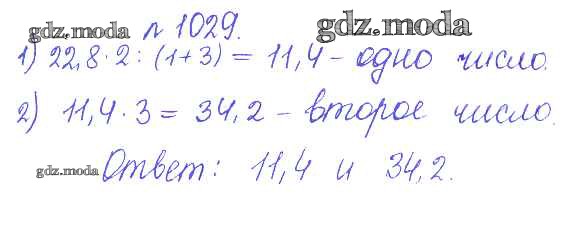 gdz.moda № 1029. gdz.moda
1) 22,8 · 2 : (1+3) = 11,4 - одно число.
2) 11,4 · 3 = 34,2 - второе число.
gdz.moda Ответ: 11,4 и 34,2.